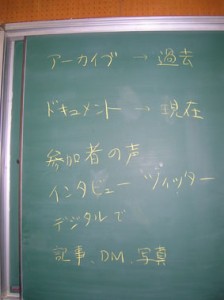 アーカイブ → 過去
ドキュメント → 現在
参加者の声
インタビュー ツイッター
デジタルで
記事、DM、写真